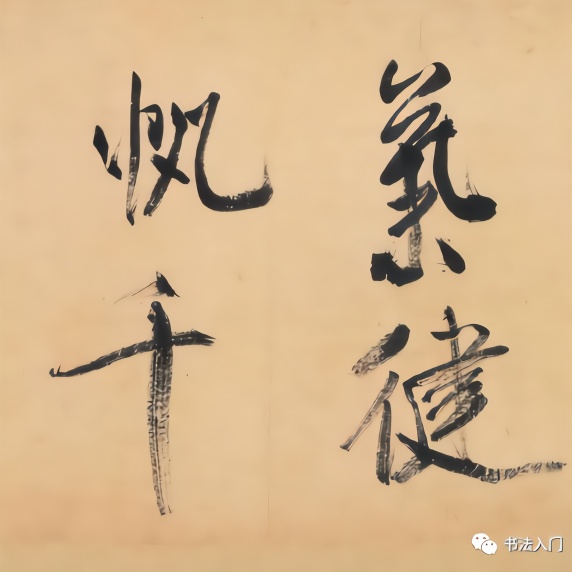 氣健
帆千
书法入门